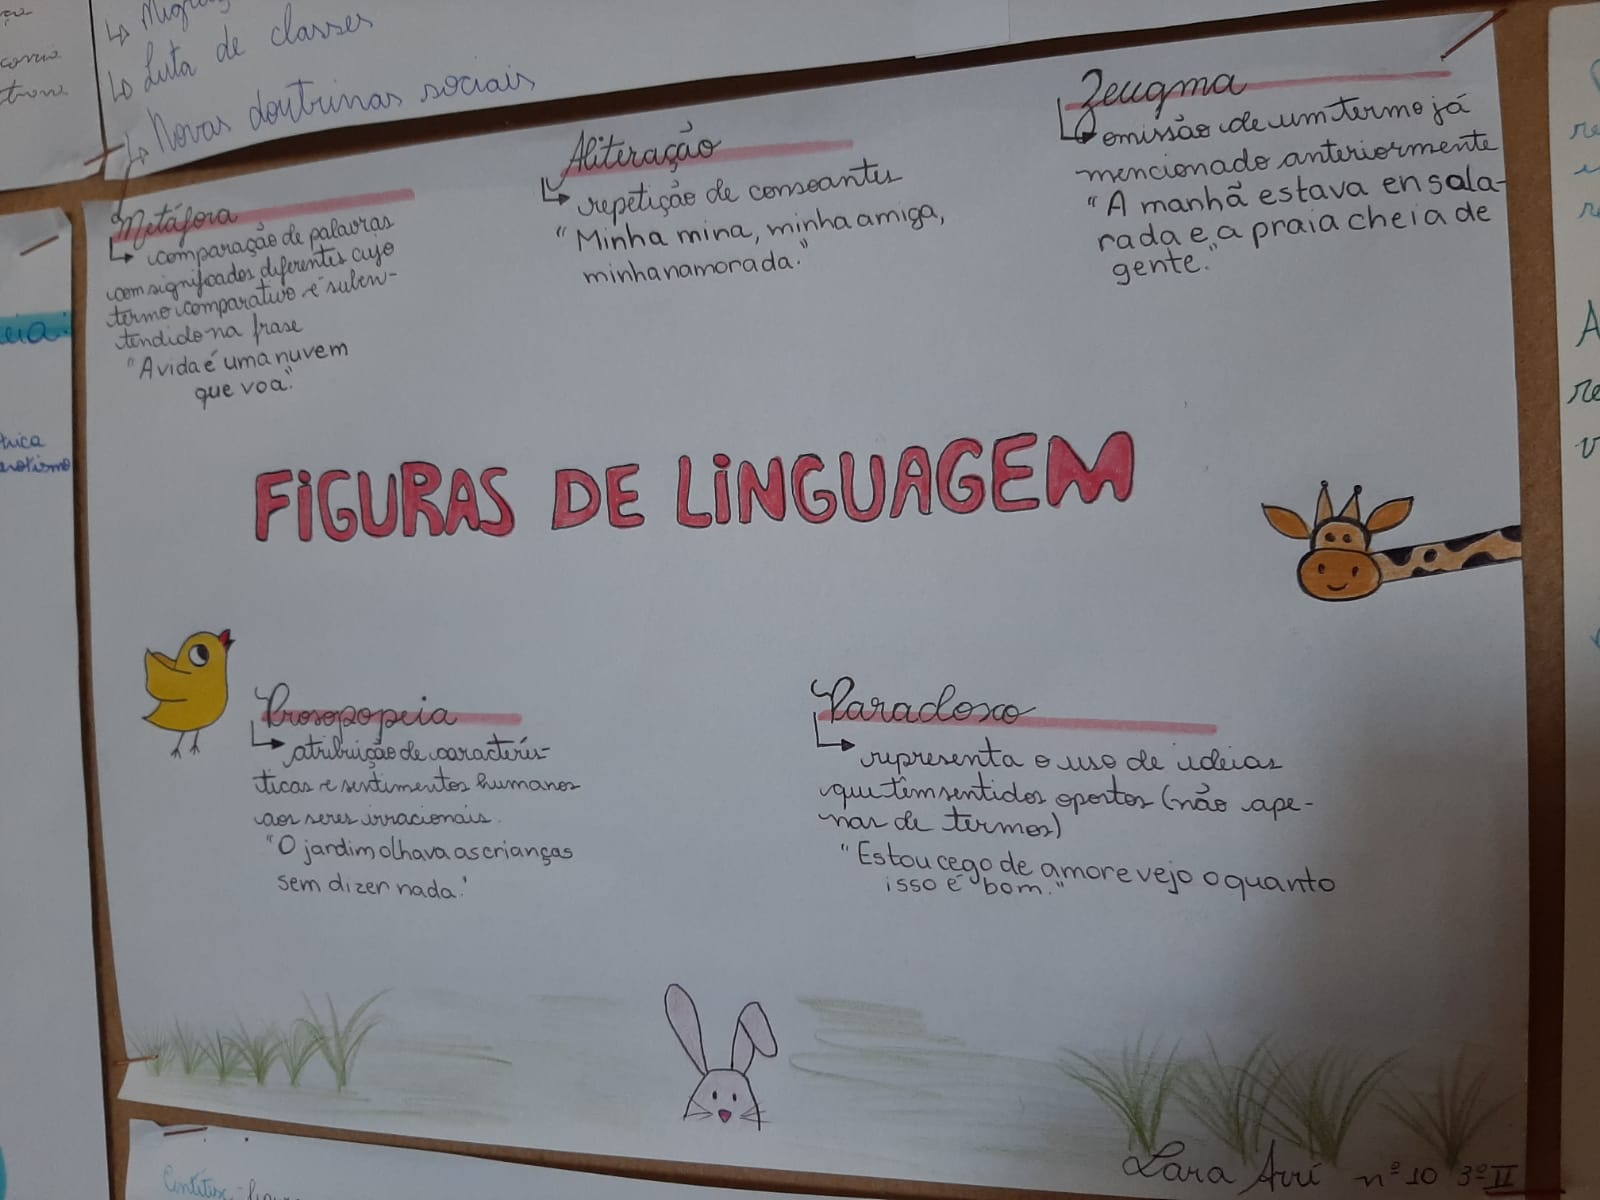 ↳ Luta de classes
↳ Novas doutrinas sociais
Metáfora
↳ comparação de palavras
com significados diferentes cujo
termo comparativo é suben-
tendido na frase
"A vida é uma nuvem
que voa."
Aliteração
↳ repetição de consoantes
"Minha mina, minha amiga,
minha namorada."
Zeugma
↳ omissão de um termo já
mencionado anteriormente
"A manhã estava ensola-
rada e, a praia cheia de
gente."
FIGURAS DE LINGUAGEM
Prosopopeia
↳ atribuição de caracterís-
ticas e sentimentos humanos
aos seres irracionais.
"O jardim olhava as crianças
sem dizer nada."
Paradoxo
↳ representa o uso de ideias
que têm sentidos opostos (não ape-
nas de termos)
"Estou cego de amor e vejo o quanto
isso é bom."
Lara Arri nº 10 3º II